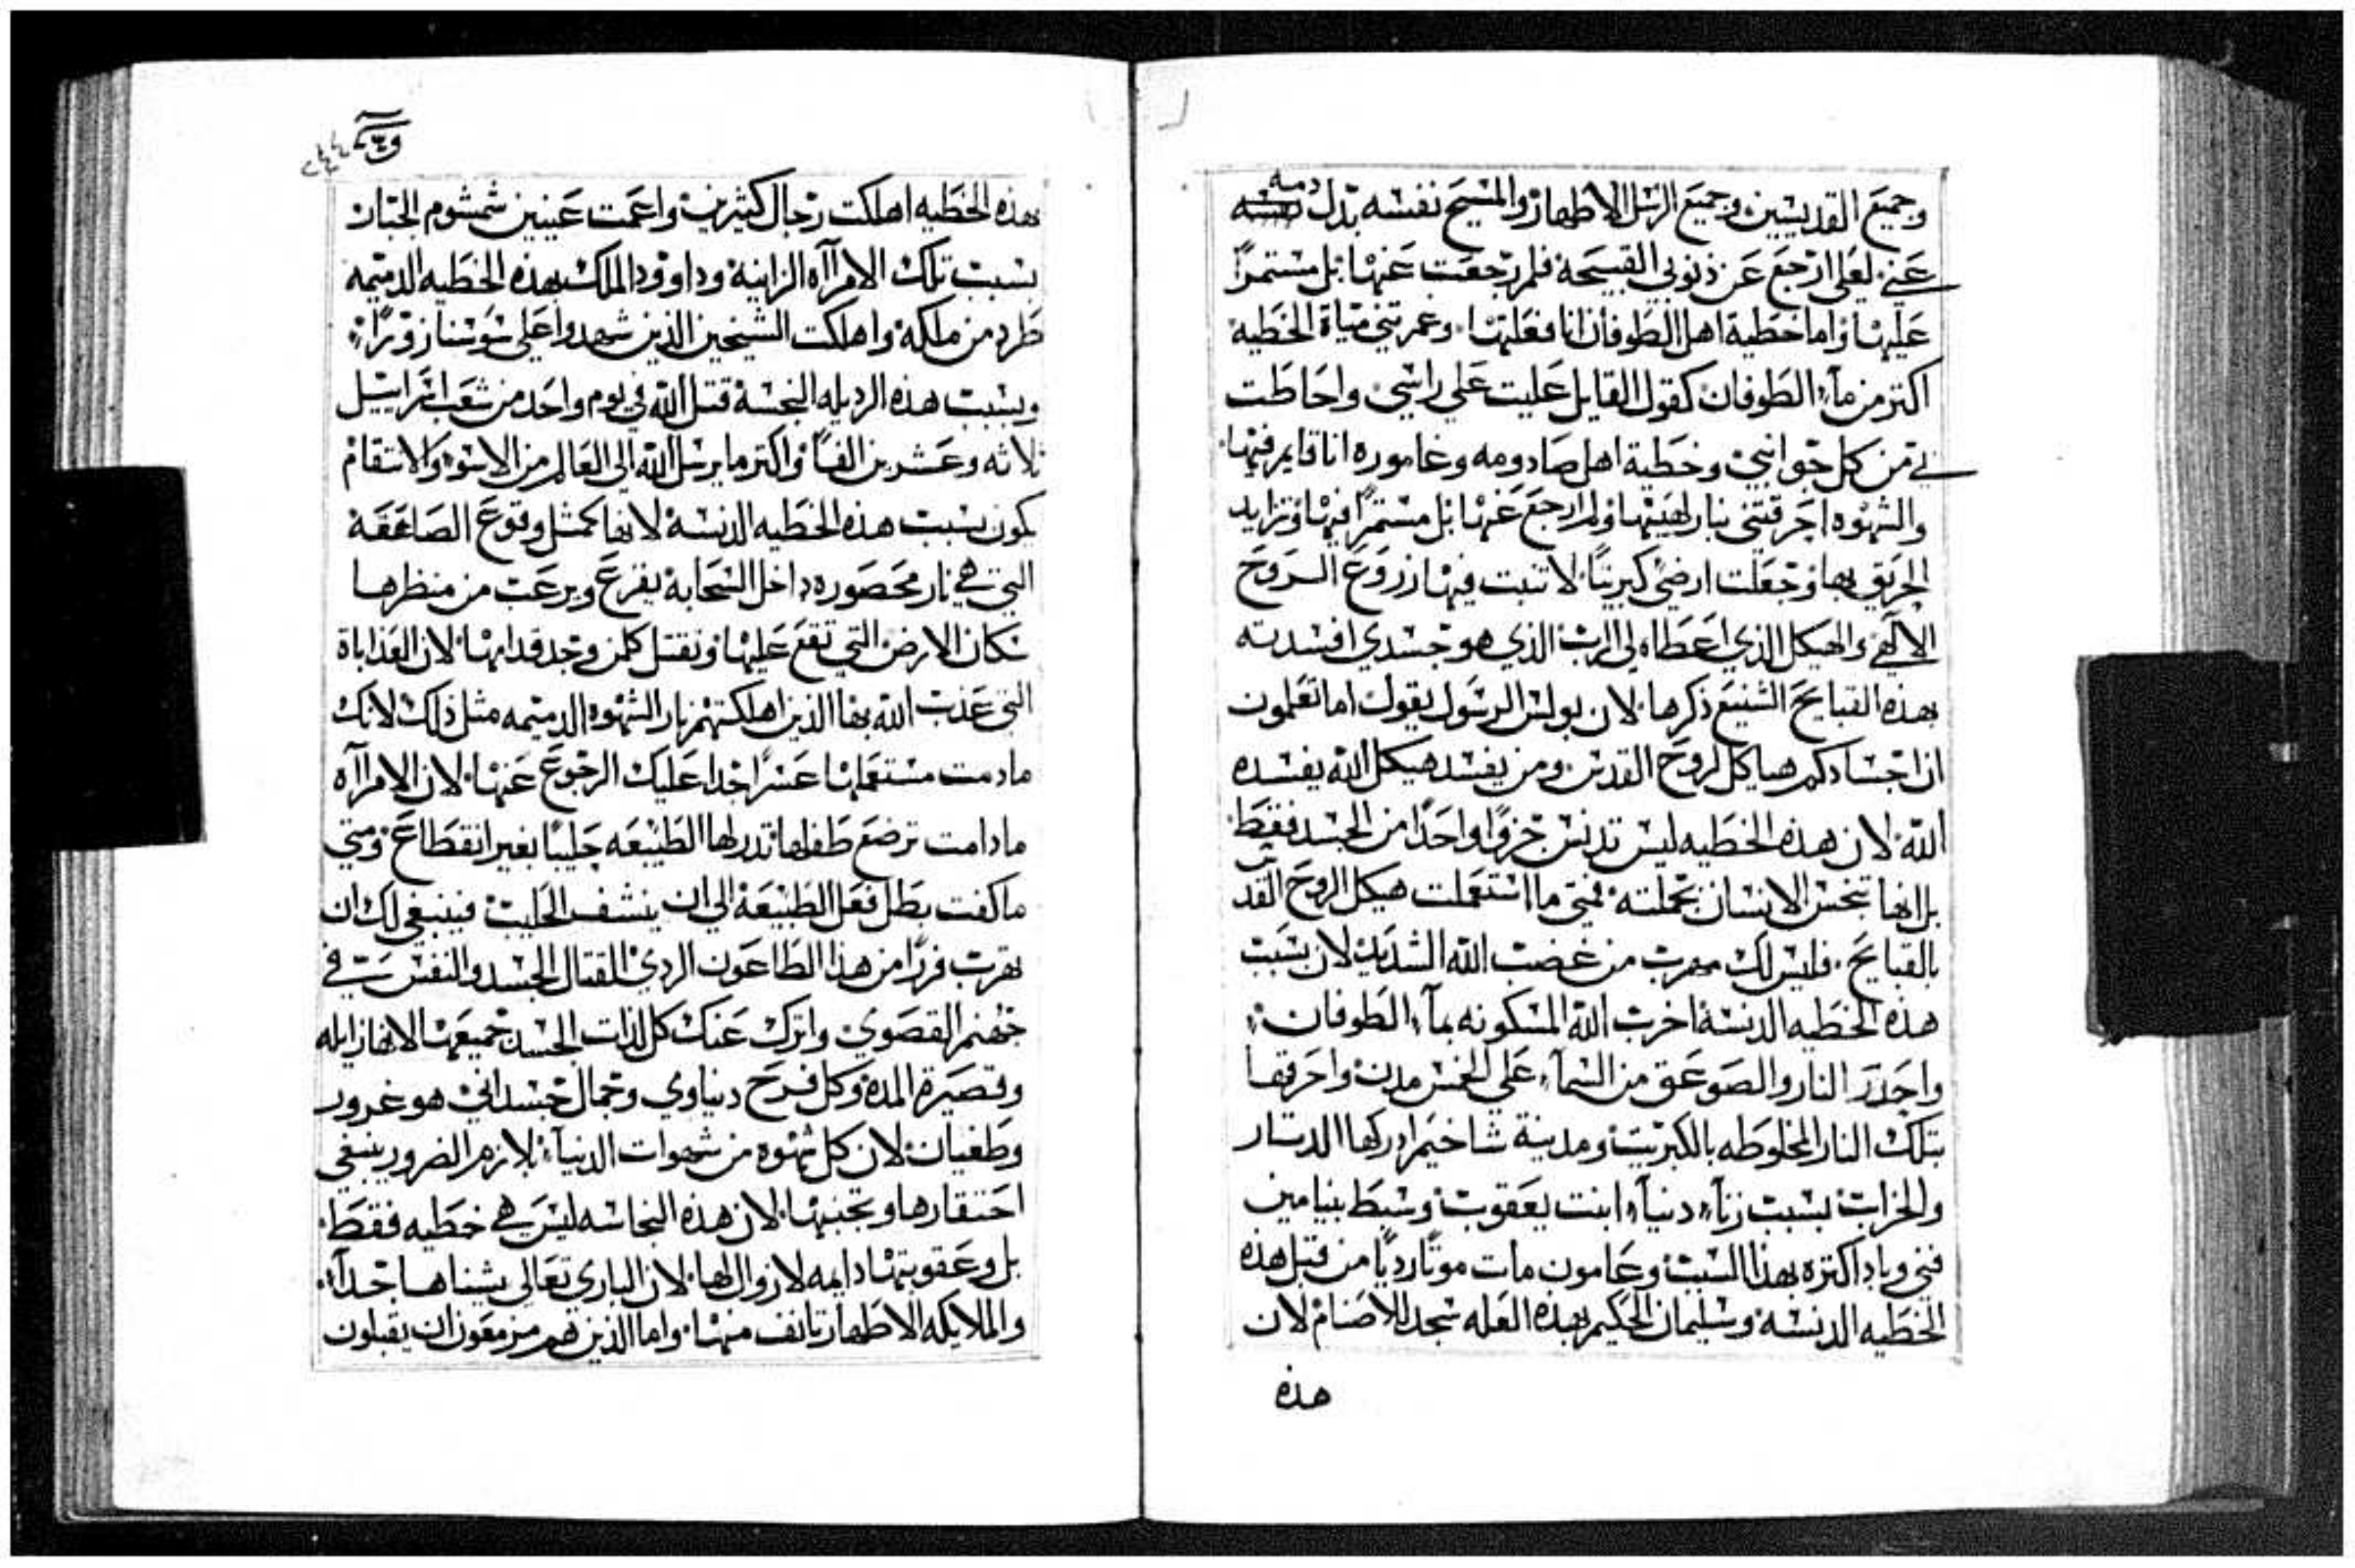 وجميع القديسين وجميع الرسل الاطهار والمسيح نفسه بدل دمه
عني لعلي ارجع عن ذنوبي القبيحة فلم رجعت عنها بل مستمرًا
عليها واما خطية اهل الطوفان انا فعلتها وغمرتني مياة الخطية
اكتر من مآء الطوفان كقول القايل عليت علي راسي واحاطت
بي من كل جوانبي وخطية اهل صادومه وغاموره انا قايم فيها
والشهوه احرقتني بنار لهيبها ولم ارجع عنها بل مستمرًا فيها وتزايد
الحريق بها وجعلت ارضي كبريتًا لا تنبت فيها زروع الروح
الالهي والهيكل الذي اعطاه لي الرب الذي هو جسدي افسدته
بهذه القبايح الشنيع ذكرها لان بولس الرسول يقول اما تعلمون
ان اجسادكم هياكل لروح القدس ومن يفسد هيكل الله يفسده
الله لان هذه الخطيه ليس تدنس جزوًا واحدًا من الجسد فقط
بل انها تنجس الانسان بجملته فمتي ما استعملت هيكل الروح القدس
بالقبايح فليس لك مهرب من غضب الله الشديد لان بسبب
هذه الخطيه الدنسة اخرب الله المسكونه بمآء الطوفان
واحدر النار والصوعق من السمآء علي الخمس مدن واحرقها
بتلك النار المخلوطه بالكبريت ومدينة شاخيم ادركها الدتار
والخراب بسبب زنآء دنيآء ابنت يعقوب وسبط بنيامين
فني وباد اكتره بهذا السبب وعامون مات موتًا رديًا من قبل هذه
الخطيه الدنسة وسليمان الحكيم بهذه العله سجد للاصنام لان
هذه
٢٤٤
بهذه الخطيه اهلكت رجال كثيرين واعمت عينين شمشوم الجبار
بسبب تلك الامرآاه الزانية وداوود الملك بهذه الخطيه الدميمه
طرد من ملكه واهلكت الشيخين الذين شهدوا علي سوسنا زورًا
وبسبب هذه الرديله النجسة قتل الله في يوم واحد من شعب اسرايیل
ثلاثه وعشرين الفًا واكتر ما يرسل الله الي العالم من الاسوا والانتقام
يكون بسبب هذه الخطيه الدنسة لانها كمثل وقوع الصاعقة
التي هي نار محصوره داخل السحابة يفزع ويرعب من منظرها
سكان الارض التي تقع عليها وتقتل كلمن وجد قدامها لان العذاباة
التي عذب الله بها الذين اهلكتهم نار الشهوه الدميمه مثل ذلك لانك
مادمت مستعملها عسرًا جدا عليك الرجوع عنها لان الامرآاه
مادامت ترضع طفلها تدر لها الطبيعه حليبًا بغير انقطاع ومتي
ما كفت بطل فعل الطبيعة الي ان ينشف الحليب فينبغي لك ان
تهرب فررًا من هذا الطاعون الردي القتال الجسد والنفس في
جهنم القصوي واترك عنك كل لذات الجسد جميعها لانها زايله
وقصيرة المدة وكل فرح دنياوي وجمال جسداني هو غرور
وطغيان لان كل شهوه من شهوات الدنيآء بلازم الضرور ينبغي
احتقارها وتجنبها لان هذه النجاسه ليس هي خطيه فقط
بل وعقوبتها دايمه لا زوال لها لان الباري تعالي يشناها جدآ
والملايكه الاطهار تانف منها واما الذين هم مزمعون ان يقبلون